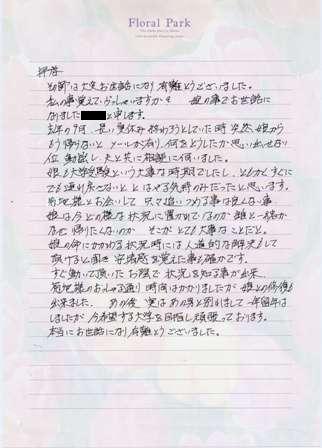 Floral Park
拝啓
先前は大変お世話になり有難とうございました。
私の事覚えていらっしゃいますか 娘の事でお世話に
なりました と申します。
去年の7月 長い夏休み終わろうとしていた時 突然、娘から
もう帰らないと メールが有り、何をどうしたか思い出せない
位 動転し 夫と共に相談に伺いました。
娘も大学受験という大事な時期でしたし、ともかくすぐに
でも連れ戻さないと とはやる気持のみだったと思います。
菊地様とお会いして 只で拾いつかる事は良くない事
娘は今どの様な状況に置かれているのか 誰と一緒か
なぜ帰りたくないのか そこがとても大事なことだと。
娘の命にかかわる状況時には人道的な解決もして
頂けると聞き 安堵感を覚えた事も確かです。
すぐ動いて頂いたお陰で 状況を知る事が出来
菊地様のおっしゃる通り 時間はかかりましたが 娘との修復も
出来ました。 あの後 実はあの男と別れまして 一年留年は
しましたが 今希望する大学を目指し頑張っております。
本当にお世話になり有難とうございました。